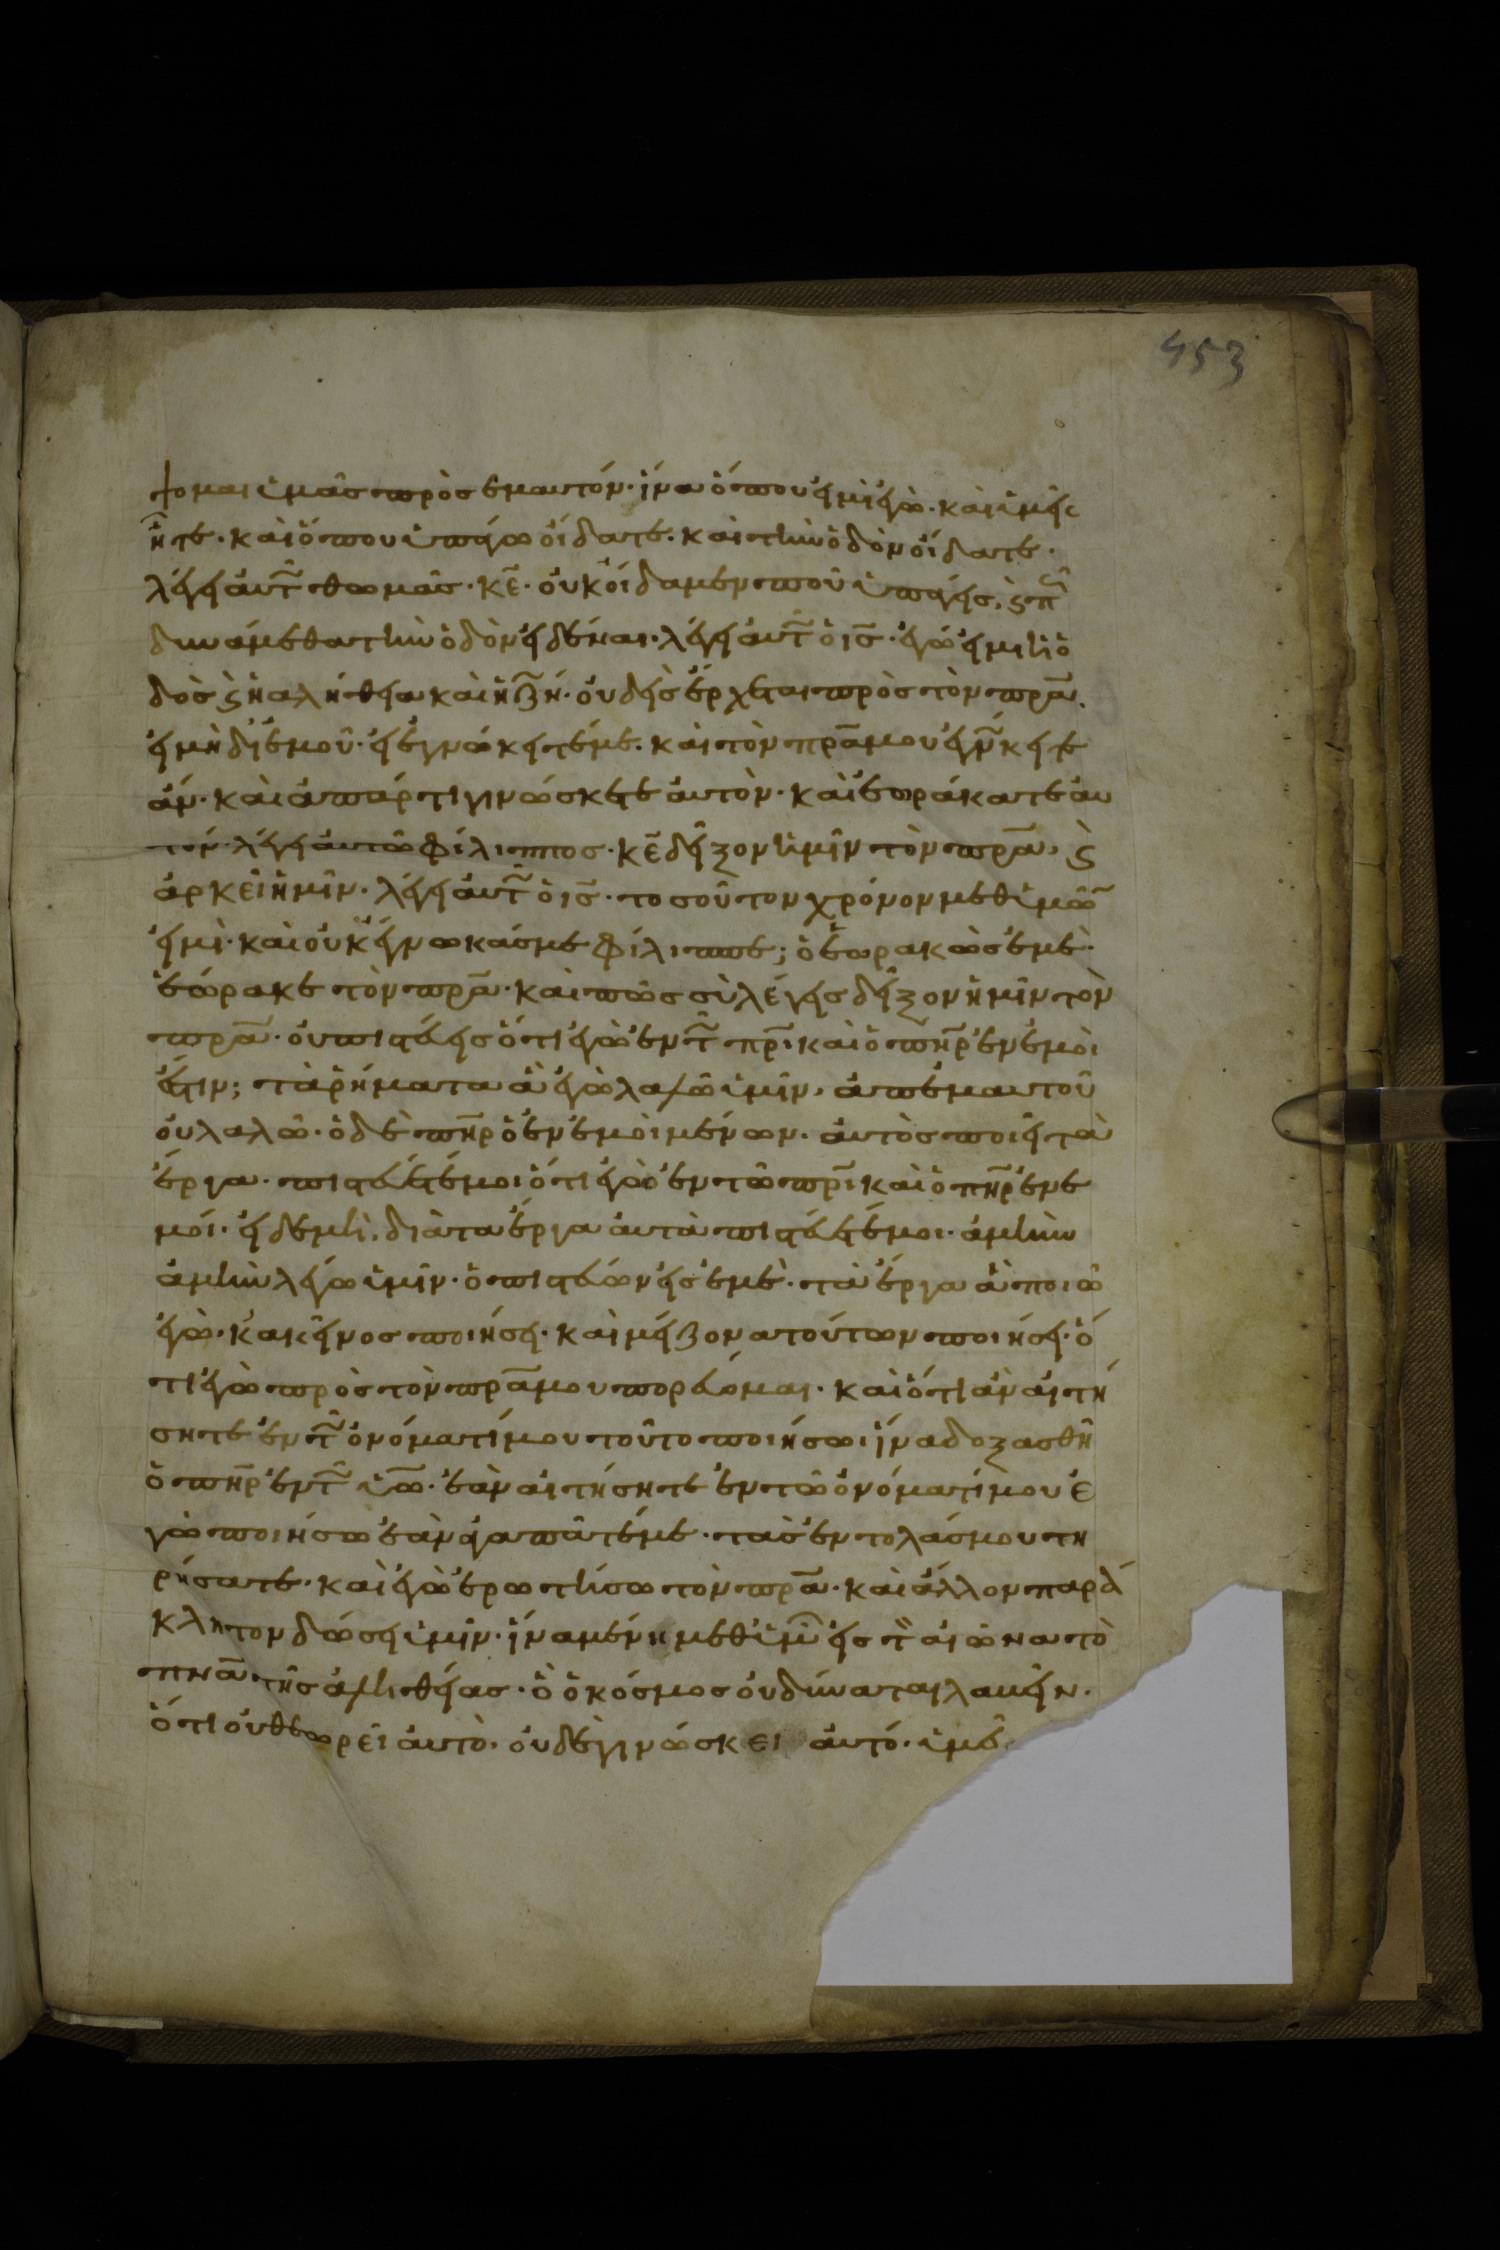 453
ψομαι ὑμᾶς πρὸς ἐμαυτόν· ἵνα ὅπου εἰμὶ ἐγὼ· καὶ ὑμεῖς
ἦτε· καὶ ὅπου ὑπάγω οἴδατε· καὶ τὴν ὁδὸν οἴδατε·
λέγει αὐτῷ θωμᾶς· κ̅ε̅· οὐκ οἴδαμεν ποῦ ὑπάγεις, ϗ πῶς
δυνάμεθα τὴν ὁδὸν εἰδέναι· λέγει αὐτῷ ὁ ι̅ς̅· ἐγώ εἰμι ἡ ὁ
δὸς ϗ ἡ ἀλήθεια καὶ ἡ ζωή· οὐδεὶς ἔρχεται πρὸς τὸν π̅ρ̅α̅·
εἰμὴ δι' ἐμοῦ· εἰ ἐγνώκειτέ με· καὶ τὸν π̅ρ̅α̅ μου ἐγνώκειτε
ἄν· καὶ ἀπάρτι γινώσκετε αὐτὸν· καὶ ἑωράκατε αὐ
τόν· λέγει αὐτῶ φίλιππος· κ̅ε̅ δεῖξον ἡμῖν τὸν π̅ρ̅α̅, ϗ
ἀρκεῖ ἡμῖν· λέγει αὐτῷ ὁ ι̅ς̅· τοσοῦτον χρόνον μεθ' ὑμῶν
εἰμὶ· καὶ οὐκ ἔγνωκάς με φίλιππε; ὁ ἑωρακὼς ἐμὲ·
ἑώρακε τὸν π̅ρ̅α̅· καὶ πῶς σὺ λέγεις δεῖξον ἡμῖν τὸν
π̅ρ̅α̅· οὐ πιστεύεις ὅτι ἐγὼ ἐν τῷ π̅ρ̅ι̅· καὶ ὁ π̅η̅ρ̅ ἐν ἐμοὶ
ἐστιν; τὰ ῥήματα ἃ ἐγὼ λαλῶ ὑμῖν, ἀπ' ἐμαυτοῦ
οὐ λαλῶ· ὁ δὲ π̅η̅ρ̅ ὁ ἐν ἐμοὶ μένων· αὐτὸς ποιεῖ τὰ
ἔργα· πιστεύετέ μοι ὅτι ἐγὼ ἐν τῶ π̅ρ̅ι̅ καὶ ὁ π̅η̅ρ̅ ἐν ἐ
μοί· εἰ δὲ μὴ, διὰ τὰ ἔργα αὐτὰ πιστεύετέ μοι· ἀμὴν
ἀμὴν λέγω ὑμῖν· ὁ πιστεύων εἰς ἐμὲ· τὰ ἔργα ἃ ποιῶ
ἐγὼ· κακεῖνος ποιήσει· καὶ μείζονα τούτων ποιήσει· ὅ
τι ἐγὼ πρὸς τὸν π̅ρ̅α̅ μου πορεύομαι· καὶ ὅτι ἂν αἰτή
σητε ἐν τῷ ὀνόματί μου τοῦτο ποιήσω· ἵνα δοξασθῆ
ὁ π̅η̅ρ̅ ἐν τῷ υ̅ω̅· ἐὰν αἰτήσητε ἐν τῶ ὀνόματί μου ἐ
γὼ ποιήσω ἐὰν ἀγαπᾶτέ με· τὰς ἐντολάς μου τη
ρήσατε· καὶ ἐγὼ ἐρωτήσω τὸν π̅ρ̅α̅· καὶ ἄλλον παρά
κλητον δώσει ὑμῖν· ἵνα μένη μεθ' ὑμῶν εἰς τὸν αἰῶνα τὸ
π̅ν̅α̅ τῆς ἀληθείας· ὃ ὁ κόσμος οὐ δύναται λαβεῖν·
ὅτι οὐ θεωρεῖ αὐτὸ· οὐδὲ γινώσκει αὐτό· ὑμεῖ